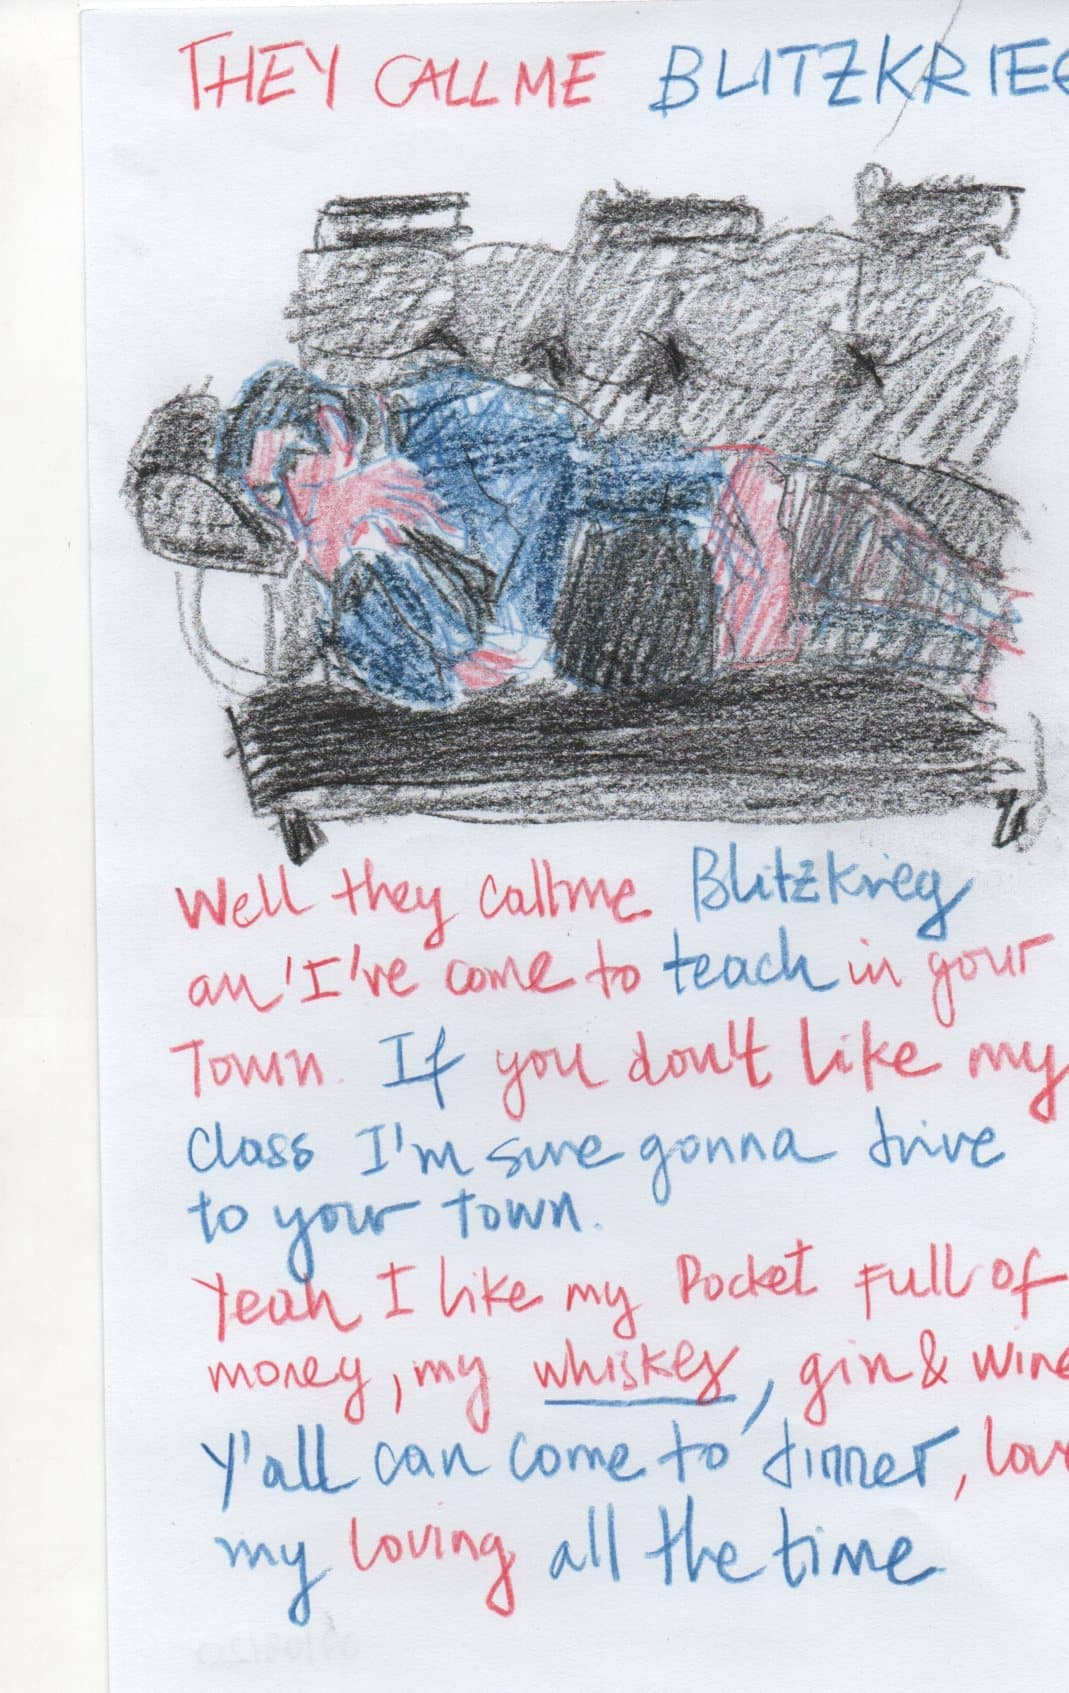 THEY CALL ME BLITZKRIEG
Well they call me Blitzkrieg
an' I've come to teach in your
Town. If you don't like my
class I'm sure gonna drive
to your town.
Yeah I like my Pocket Full of
money, my whiskey, gin & wine
Y'all can come to dinner,
my loving all the time